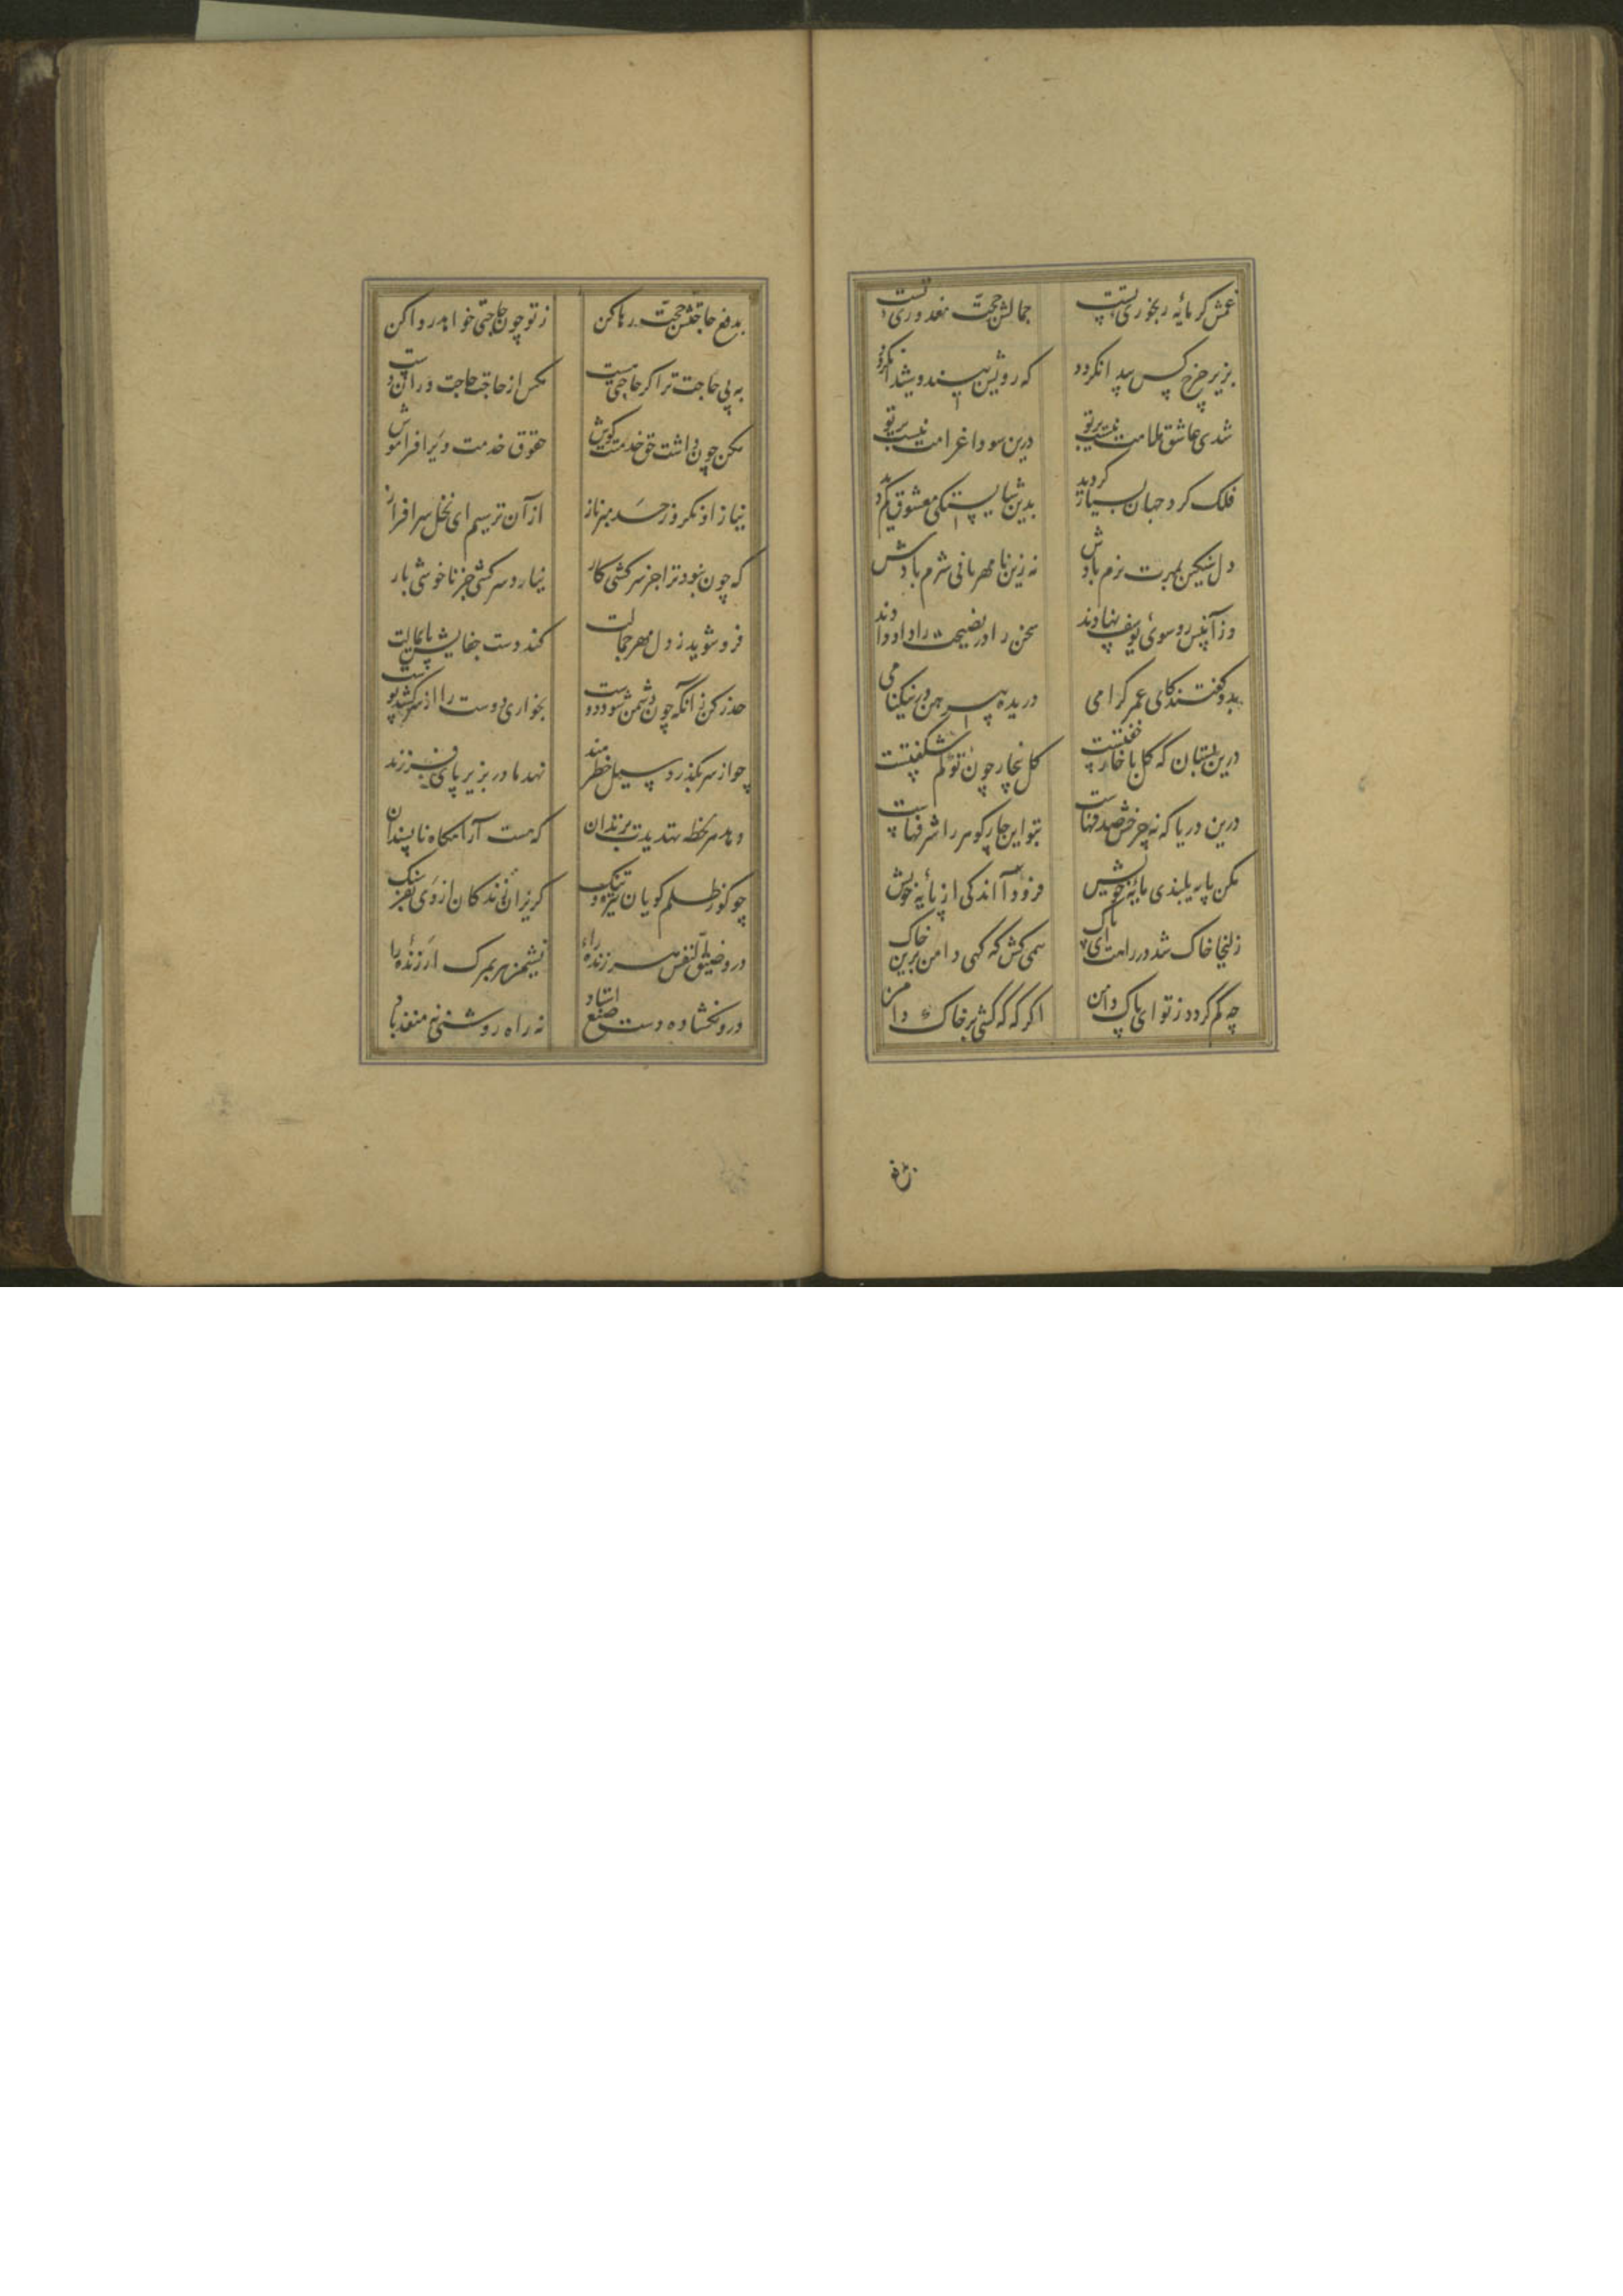 غمش گر مایه رنجوری تست جمالش حجت معذوری تست
بزیر چرخ کس پیدا نگردد که رویش بیند و شیدا نگردد
شدی عاشق ملامت نیست بر تو درین سودا غرامت نیست بر تو
فلک گرد جهان بسیار گردید بدین شایستگی معشوق کم دید
دل سنگین بمهرت نرم بادش نه زین نامهربانی شرم بادش
وز آن پس رو سوی یوسف نهادند سخن را در نصیحت داد دادند
بدو گفتند کای عمر گرامی دریده پیرهن در نیکنامی
درین بستان که گل با خار جفتست گل بیخار چون تو کم شکفتست
درین دریا که نه چرخش صدفهاست بتو این چار گوهر را شرفهاست
مکن پایه بلندی مایه خویش فرود آ اندکی از پایه خویش
زلیخا خاک شد در راهت ای پاک همی کش گه گهی دامن برین خاک
چه کم گردد ز تو ای پاک دامن اگر گه گه کشی بر خاک دامن
بدفع
بدفع حاجتش حجت رها کن ز تو چون حاجتی خواهد روا کن
به بی حاجت ترا گر حاجتی هست مکش از حاجت حاجت وران دست
مکن چون داشت حق خدمتت گوش حقوق خدمت ویرا فراموش
نیاز او نگر وز حد مبر ناز از آن ترسیم ای نخل سرافراز
که چون نبود ترا جز سرکشی کار نیارد سرکشی جز ناخوشی بار
فرو شوید ز دل مهر جمالت کند دست جفایش پایمالت
حذر کن زانکه چون دشمن شود دوست بخواری دوست را از سر کشد پوست
چو از سر بگذرد سیل خطرمند نهد مادر بزیر پای فرزند
دهد هر لحظه تهدیدت بزندان که هست آرامگاه ناپسندان
چو گور ظلم گویان تیره و تنگ گریزان زندگان از وی بفرسنگ
درو ضیق النفس هر زنده را نشیمن هر بمرگ ارزنده را
درو نگشاده دست صنع استاد نه راه روشنی نه منفذ باد